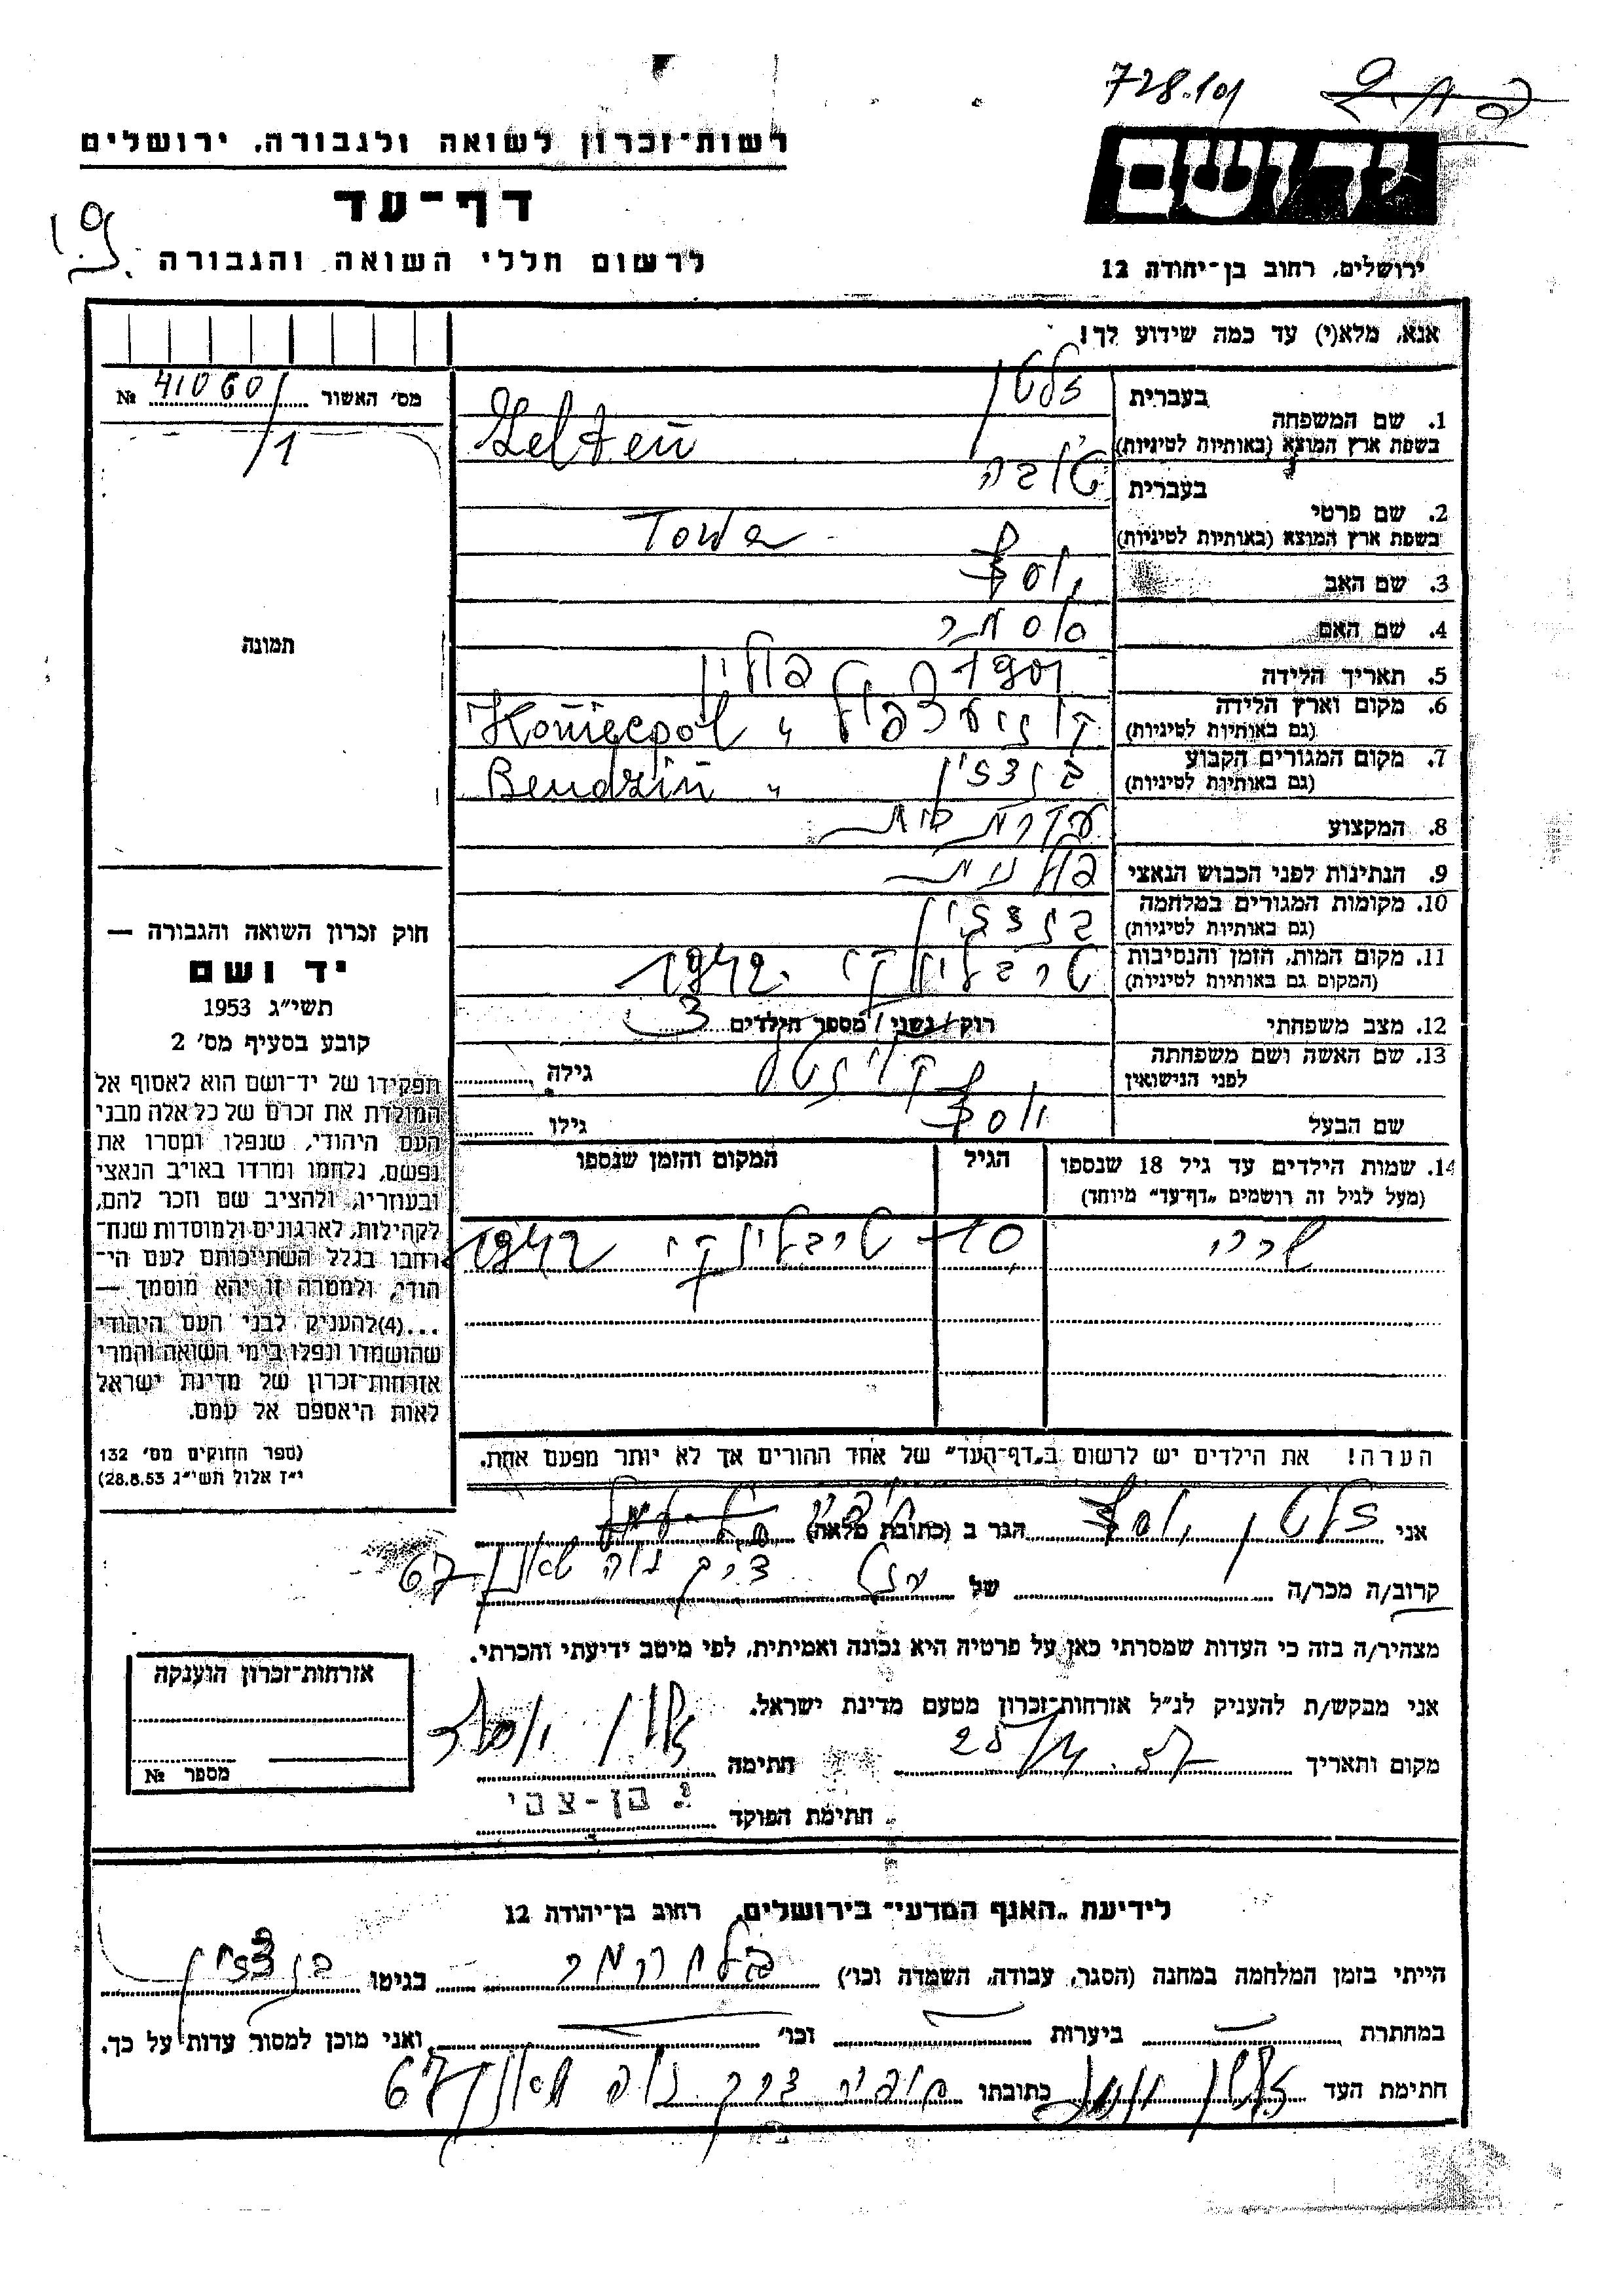 728.101
רשות־זכרון לשואה ולגבורה, ירושלים
דף־עד
לרשום חללי השואה והגבורה
ידושם
ירושלים, רחוב בן־יהודה 12
אנא, מלא(י) עד כמה שידוע לך!
מס׳ האשור № 41060/1
תמונה
1. שם המשפחה
בעברית זלטן
בשפת ארץ המוצא (באותיות לטיניות) Zelten
2. שם פרטי
בעברית טובה
בשפת ארץ המוצא (באותיות לטיניות) Towa
3. שם האב יוסף
4. שם האם
5. תאריך הלידה 1907
6. מקום וארץ הלידה
(גם באותיות לטיניות) קוניעצפול " Koniecpol פולין
7. מקום המגורים הקבוע
(גם באותיות לטיניות) בנדצין " Bendzin
8. המקצוע עקרת בית
9. הנתינות לפני הכבוש הנאצי פולנית
10. מקומות המגורים במלחמה
(גם באותיות לטיניות) בנדצין
11. מקום המות, הזמן והנסיבות
(המקום גם באותיות לטיניות) טרבלינקי 1942
12. מצב משפחתי רוק/נשוי/מספר הילדים 3
13. שם האשה ושם משפחתה
לפני הנישואין גילה
שם הבעל יוסף גילו
14. שמות הילדים עד גיל 18 שנספו
(מעל לגיל זה רושמים „דף־עד״ מיוחד)
הגיל
המקום והזמן שנספו
שרי 10 טרבלינקי 1942
הערה! את הילדים יש לרשום ב„דף־העד״ של אחד ההורים אך לא יותר מפעם אחת.
חוק זכרון השואה והגבורה —
יד ושם
תשי״ג 1953
קובע בסעיף מס׳ 2
תפקידו של יד־ושם הוא לאסוף אל
המולדת את זכרם של כל אלה מבני
העם היהודי, שנפלו ומסרו את
נפשם, נלחמו ומרדו באויב הנאצי
ובעוזריו, ולהציב שם וזכר להם,
לקהילות, לארגונים ולמוסדות שנח־
רחבו בגלל השתייכותם לעם הי־
הודי, ולמטרה זו יהא מוסמך —
...(4)להעניק לבני העם היהודי
שהושמדו ונפלו בימי השואה והמרי
אזרחות־זכרון של מדינת ישראל
לאות היאספם אל עמם.
(ספר החוקים מס׳ 132
י״ז אלול תשי״ג 28.8.53)
אני זלטן יוסף הגר ב (כתובת מלאה) חיפה
קרוב/ה מכר/ה של דרך נוה שאנן 67
מצהיר/ה בזה כי העדות שמסרתי כאן על פרטיה היא נכונה ואמיתית, לפי מיטב ידיעתי והכרתי.
אני מבקש/ת להעניק לנ״ל אזרחות־זכרון מטעם מדינת ישראל.
מקום ותאריך 57 חתימה זלטן יוסף
חתימת הפוקד י. בן-צבי
אזרחות־זכרון הוענקה
מספר №
לידיעת „האגף המדעי״ בירושלים, רחוב בן־יהודה 12
הייתי בזמן המלחמה במחנה (הסגר, עבודה, השמדה וכו׳) בגיטו בנדצין
במחתרת — ביערות — וכו׳ — ואני מוכן למסור עדות על כך.
חתימת העד זלטן יוסף כתובתו חיפה דרך נוה שאנן 67